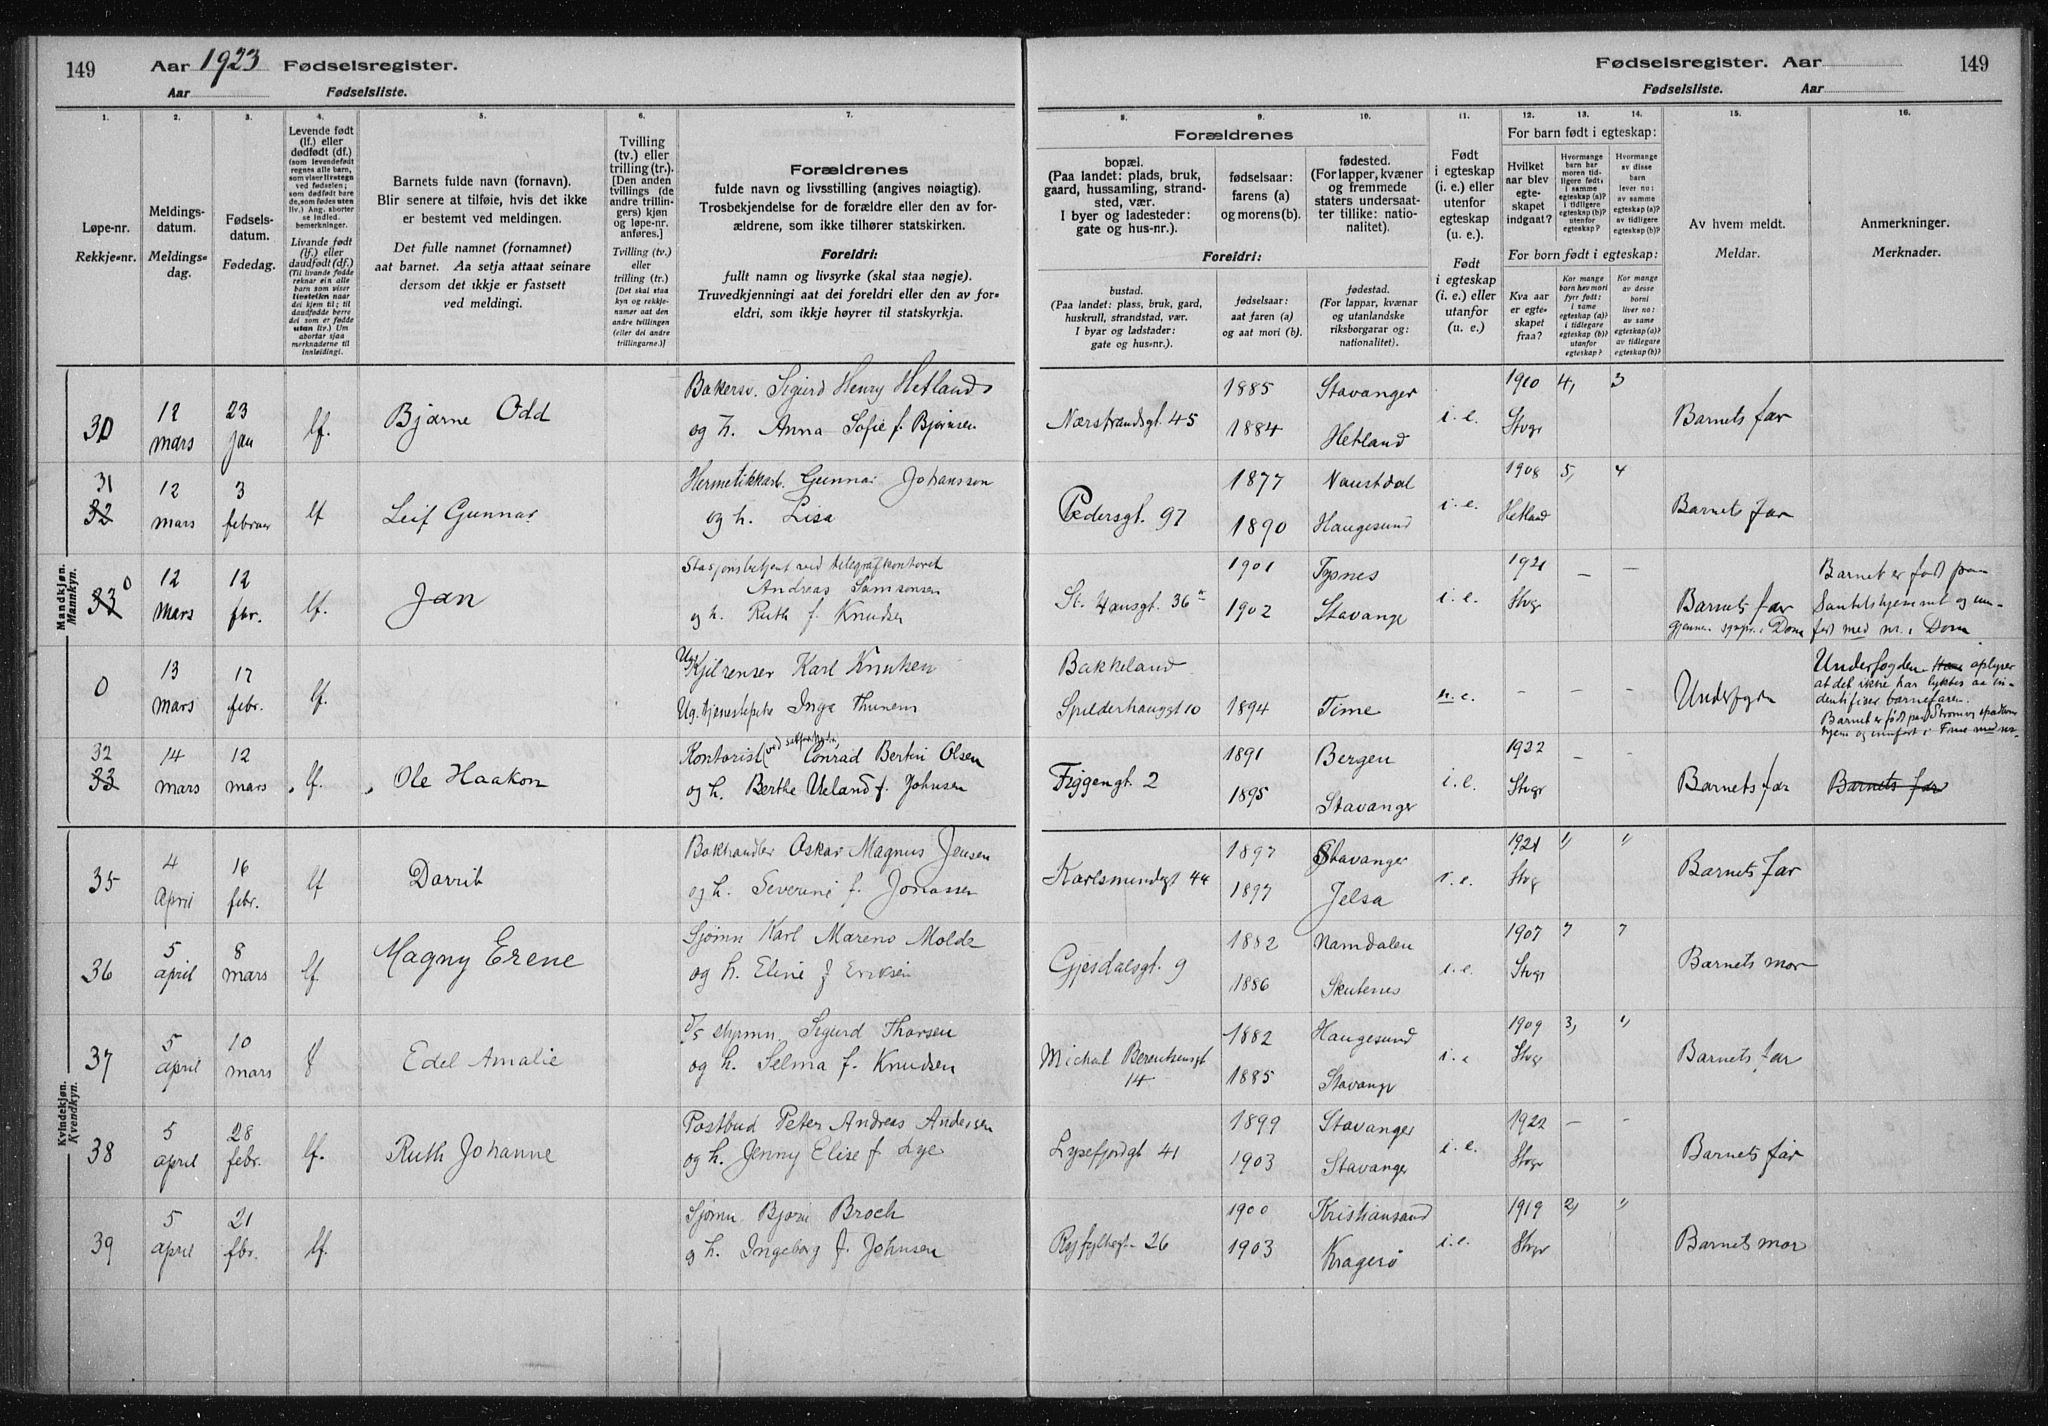 149 Aar 1923 Fødselsregister.
Aar Fødselsliste.
Fødselsregister. Aar 149
Fødselsliste. Aar
1. 2. 3. 4. 5. 6. 7. 8. 9. 10. 11. 12. 13. 14. 15. 16.
Løpe-nr.
Rekkje-nr.
Meldings-
datum.
Meldings-
dag.
Fødsels-
datum.
Fødedag.
Levende født
(lf.) eller
dødfødt (df.)
(som levendefødt
regnes alle barn,
som viser livstegn
ved fødselen;
som dødfødt bare
de, som fødes uten
liv.) Ang. aborter
se Indled.
bemerkninger.
Livande født
(lf.) eller
daudfødt (df.)
(Til livande fødde
reknar ein alle
barn som viser
livsteikn naar
dei kjem til; til
daudfødde berre
dei som er fødde
utan liv.) Um
abortar sjaa
merknaderne til
innleidingi.
Barnets fulde navn (fornavn).
Blir senere at tilføie, hvis det ikke
er bestemt ved meldingen.
Det fulle namnet (fornamnet)
aat barnet. Aa setja attaat seinare
dersom det ikkje er fastsett
ved meldingi.
Tvilling
(tv.) eller
trilling (tr.).
[Den anden
tvillings (de
andre trillin-
gers) kjøn
og løpe-nr.
anføres.]
Tvilling (tv.)
eller
trilling (tr.)
[Det skal staa
kyn og rekkje-
numer aat den
andre tvillingen
(eller dei andre
trillingarne.)]
Forældrenes
fulde navn og livsstilling (angives nøiagtig).
Trosbekjendelse for de forældre eller den av for-
ældrene, som ikke tilhører statskirken.
Foreldri:
fullt namn og livsyrke (skal staa nøgje).
Truvedkjenningi aat dei foreldri eller den av for-
eldri, som ikkje høyrer til statskyrkja.
Forældrenes
bopæl.
(Paa landet: plads, bruk,
gaard, hussamling, strand-
sted, vær.
I byer og ladesteder:
gate og hus-nr.).
fødselsaar:
farens (a)
og morens (b).
fødested.
(For lapper, kvæner
og fremmede
staters undersaat-
ter tillike: natio-
nalitet).
Foreldri:
bustad.
(Paa landet: plass, bruk, gard,
huskrull, strandstad, vær.
I byar og ladstader:
gate og hus-nr.).
fødselsaar:
aat faren (a)
og aat mori (b).
fødestad.
(For lappar, kvænar
og utanlandske
riksborgarar og:
nationalitet).
Født
i egteskap
(i. e.) eller
utenfor
egteskap
(u. e.).
Født
i egteskap
(i. e.) eller
utanfor
(u. e.)
For barn født i egteskap:
Hvilket
aar blev
egte-
skapet
indgaat?
Hvormange
barn har
moren tid-
ligere født:
i samme
egteskap (a)?
i tidligere
egteskap (b)?
utenfor
egteskap?
Hvormange
av disse
barn
lever nu:
av samme
egteskap (a)?
av tidligere
egteskap (b)?
For born født i egteskap:
Kva aar
er egte-
skapet
fraa?
Kor mange
born hev mori
fyrr født:
i same
egteskap (a)?
i tidlegare
egteskap (b)?
utanfor
egteskap?
Kor mange
av desse
borni
lever no:
av same
egteskap (a)?
av tidlegare
egteskap (b)?
Av hvem meldt.
Meldar.
Anmerkninger.
Merknader.
Mandkjøn.
Mannkyn.
30 12 mars 23 jan lf. Bjarne Odd
Bakersv. Sigurd Henry Hetland
og h. Anna Sofie f. Bjørnsen
Nærstrandsgt. 45 1885 Stavanger
1884 Hetland i.e. 1910 Stvgr 4, 3 Barnets far
31 32 12 mars 3 februar lf Leif Gunnar
Hermetikkarb. Gunnar Johansson
og h. Lisa
Pedersgt. 97 1877 Naustdal
1890 Haugesund i.e. 1908 Hetland 5, 4 Barnets far
33 0 12 mars 12 fbr. lf. Jan
Stasjonsbetjent ved telegrafkontoret
Andreas Samsonsen
og h. Ruth f. Knudsen
St. Hansgt. 36 1901 Tysnes
1902 Stavange i.e. 1921 Stvgr – – Barnets far
Barnet er født paa
og inn-
ført med nr. i Dom
0 13 mars 17 febr. lf.
Ug. Karl Knutsen
Ug. tjenestepike Inga Thunem
Bakkeland
Spilderhauggt 10 1894 Time u.e. – – – Underfogden
Underfogden Har oplyser
at det ikke har lyktes aa i-
dentifiser barnefaren.
Barnet er født paa
hjem og innført i Time med nr.
32 33 14 mars 12 mars lf. Ole Haakon
Kontorist Conrad Bertin Olsen
og h. Berthe Ueland f. Johnsen
Figgengt. 2 1891 Bergen
1895 Stavanger i.e. 1922 Stvgr – Barnets far Barnets far
Kvindekjøn.
Kvendkyn.
35 4 April 16 febr. lf Dorrit
Bokhandler Oskar Magnus Jensen
og h. Severine f. Jonassen
Karlsmindegt 44 1897 Stavanger
1897 Jelsa i.e. 1921 Stvgr " " Barnets far
36 5 april 8 mars lf. Magny Erene
Sjømn Karl Mareno Molde
og h. Eline f Eriksen
Gjesdalsgt. 9 1882 Namdalen
1886 Skutenes i.e. 1907 Stvgr 7 7 Barnets mor
37 5 april 10 mars f Edel Amalie
Sigurd Thorsen
og h. Selma f. Knudsen
Michal Berentsensgt
14 1882 Haugesund
1885 Stavange i.e 1909 Stvgr 3, " Barnets far
38 5 april 28 febr. lf. Ruth Johanne
Postbud Peter Andreas Andersen
og h. Jenny Elise f Lye
Lysefjordgt 41 1899 Stavanger
1903 Stavanger i.e. 1922 Stvgr – – Barnets far
39 5 april 21 fbr. lf.
Sjømn Bjarne Broch
og h. Ingeborg f. Johnsen
Ryfylkegt. 26 1900 Kristiansand
1903 Kragerø i.e. 1919 Stvgr 2, " Barnets mor